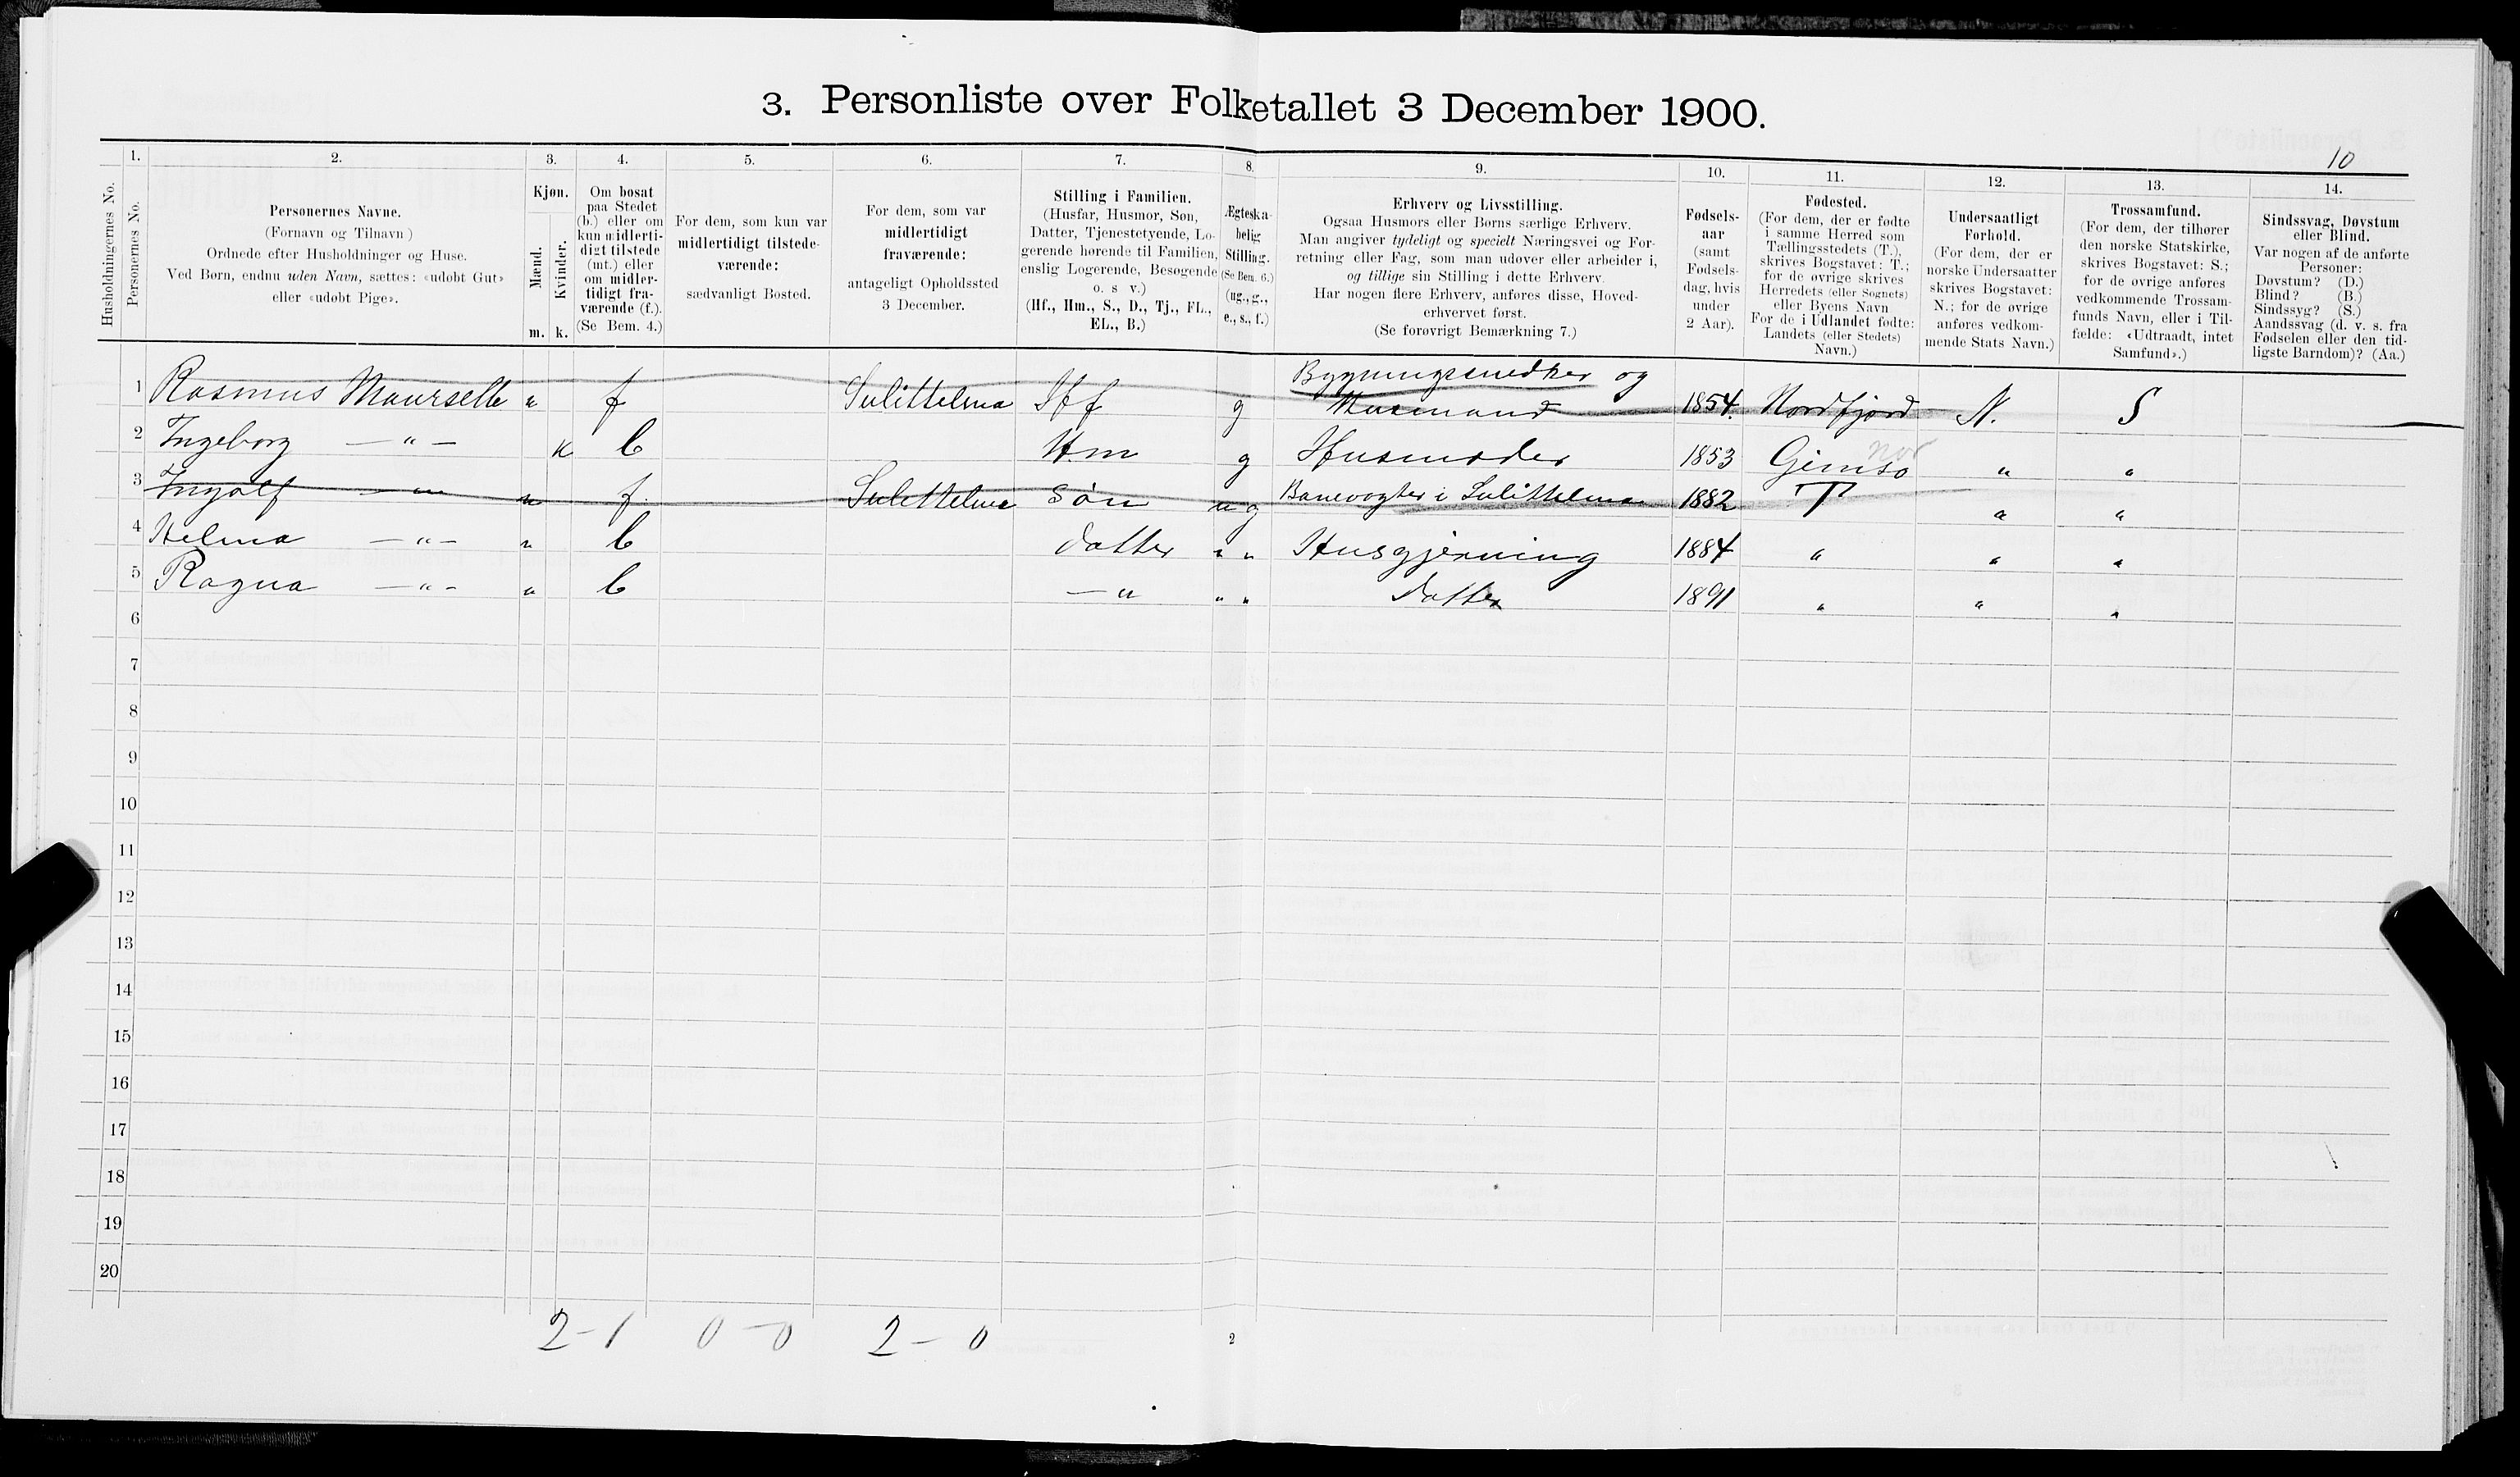 3. Personliste over Folketallet 3 December 1900.
10
Husholdningernes No.
1.
Personernes No.
2.
Personernes Navne.
(Fornavn og Tilnavn)
Ordnede efter Husholdninger og Huse.
Ved Børn, endnu uden Navn, sættes: «udøbt Gut»
eller «udøbt Pige».
3.
Kjøn.
Mænd.
Kvinder.
m. k.
4.
Om bosat
paa Stedet
(b.) eller om
kun midlerti-
digt tilstede
(mt.) eller
om midler-
tidigt fra-
værende (f.).
(Se Bem. 4.)
5.
For dem, som kun var
midlertidigt tilstede-
værende:
sædvanligt Bosted.
6.
For dem, som var
midlertidigt
fraværende:
antageligt Opholdssted
3 December.
7.
Stilling i Familien.
(Husfar, Husmor, Søn,
Datter, Tjenestetyende, Lo-
gerende hørende til Familien,
enslig Logerende, Besøgende
o. s v.)
(Hf., Hm., S., D., Tj., FL.,
EL., B.)
8.
Ægteska-
belig
Stilling.
(Se Bem. 6.)
(ug., g.,
e., s., f.)
9.
Erhverv og Livsstilling.
Ogsaa Husmors eller Børns særlige Erhverv.
Man angiver tydeligt og specielt Næringsvei og For-
retning eller Fag, som man udøver eller arbeider i,
og tillige sin Stilling i dette Erhverv.
Har nogen flere Erhverv, anføres disse, Hoved-
erhvervet først.
(Se forøvrigt Bemærkning 7.)
10.
Fødsels-
aar
(samt
Fødsels-
dag, hvis
under
2 Aar).
11.
Fødested.
(For dem, der er fødte
i samme Herred som
Tællingsstedets (T.),
skrives Bogstavet: T.;
for de øvrige skrives
Herredets (eller Sognets)
eller Byens Navn
For de i Udlandet fødte:
Landets (eller Stedets)
Navn.)
12.
Undersaatligt
Forhold.
(For dem, der er
norske Undersaatter
skrives Bogstavet:
N.; for de øvrige
anføres vedkom-
mende Stats Navn.)
13.
Trossamfund.
(For dem, der tilhører
den norske Statskirke,
skrives Bogstavet: S.;
for de øvrige anføres
vedkommende Trossam-
funds Navn, eller i Til-
fælde: «Udtraadt, intet
Samfund».)
14.
Sindssvag, Døvstum
eller Blind.
Var nogen af de anførte
Personer:
Døvstum? (D.)
Blind? (B.)
Sindssyg? (S.)
Aandssvag (d. v. s. fra
Fødselen eller den tid-
ligste Barndom)? (Aa.)
1 Rasmus Maurseth m f Sulittelma Hf g Bygningssnedker og Husmand 1854. Nordfjord N. S
2 Ingeborg —"— k b Hm g Husmoder 1853 Gimsø Nor " "
3 Ingolf —"— m f. Sulittelma Søn ug Banevogter i Sulittelma 1882 T " "
4 Helma —"— " b Datter " " Husgjerning 1884 " " "
5 Ragna —"— " b —" " " Datter 1891 " " "
6
7
8
9
10
11
12
13
14
15
16
17
18
19
20
2-1 0-0 2-0
2